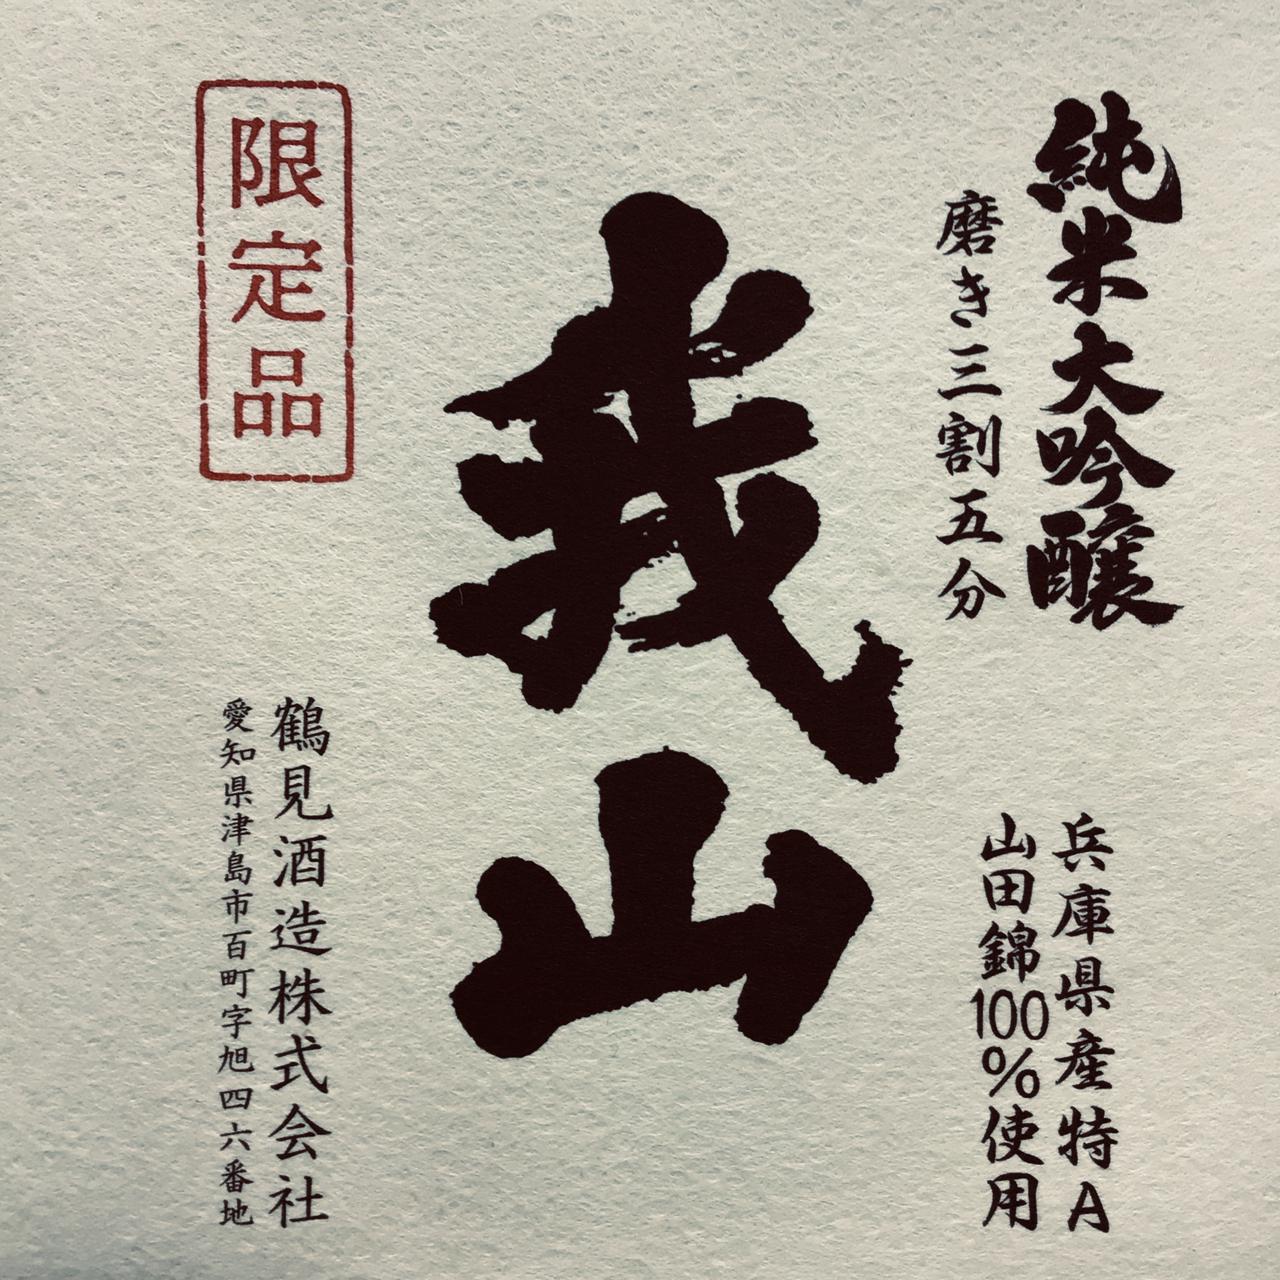 純米大吟醸
磨き三割五分
兵庫県産特A
山田錦100%使用
我山
限定品
鶴見酒造株式会社
愛知県津島市百町字旭四六番地